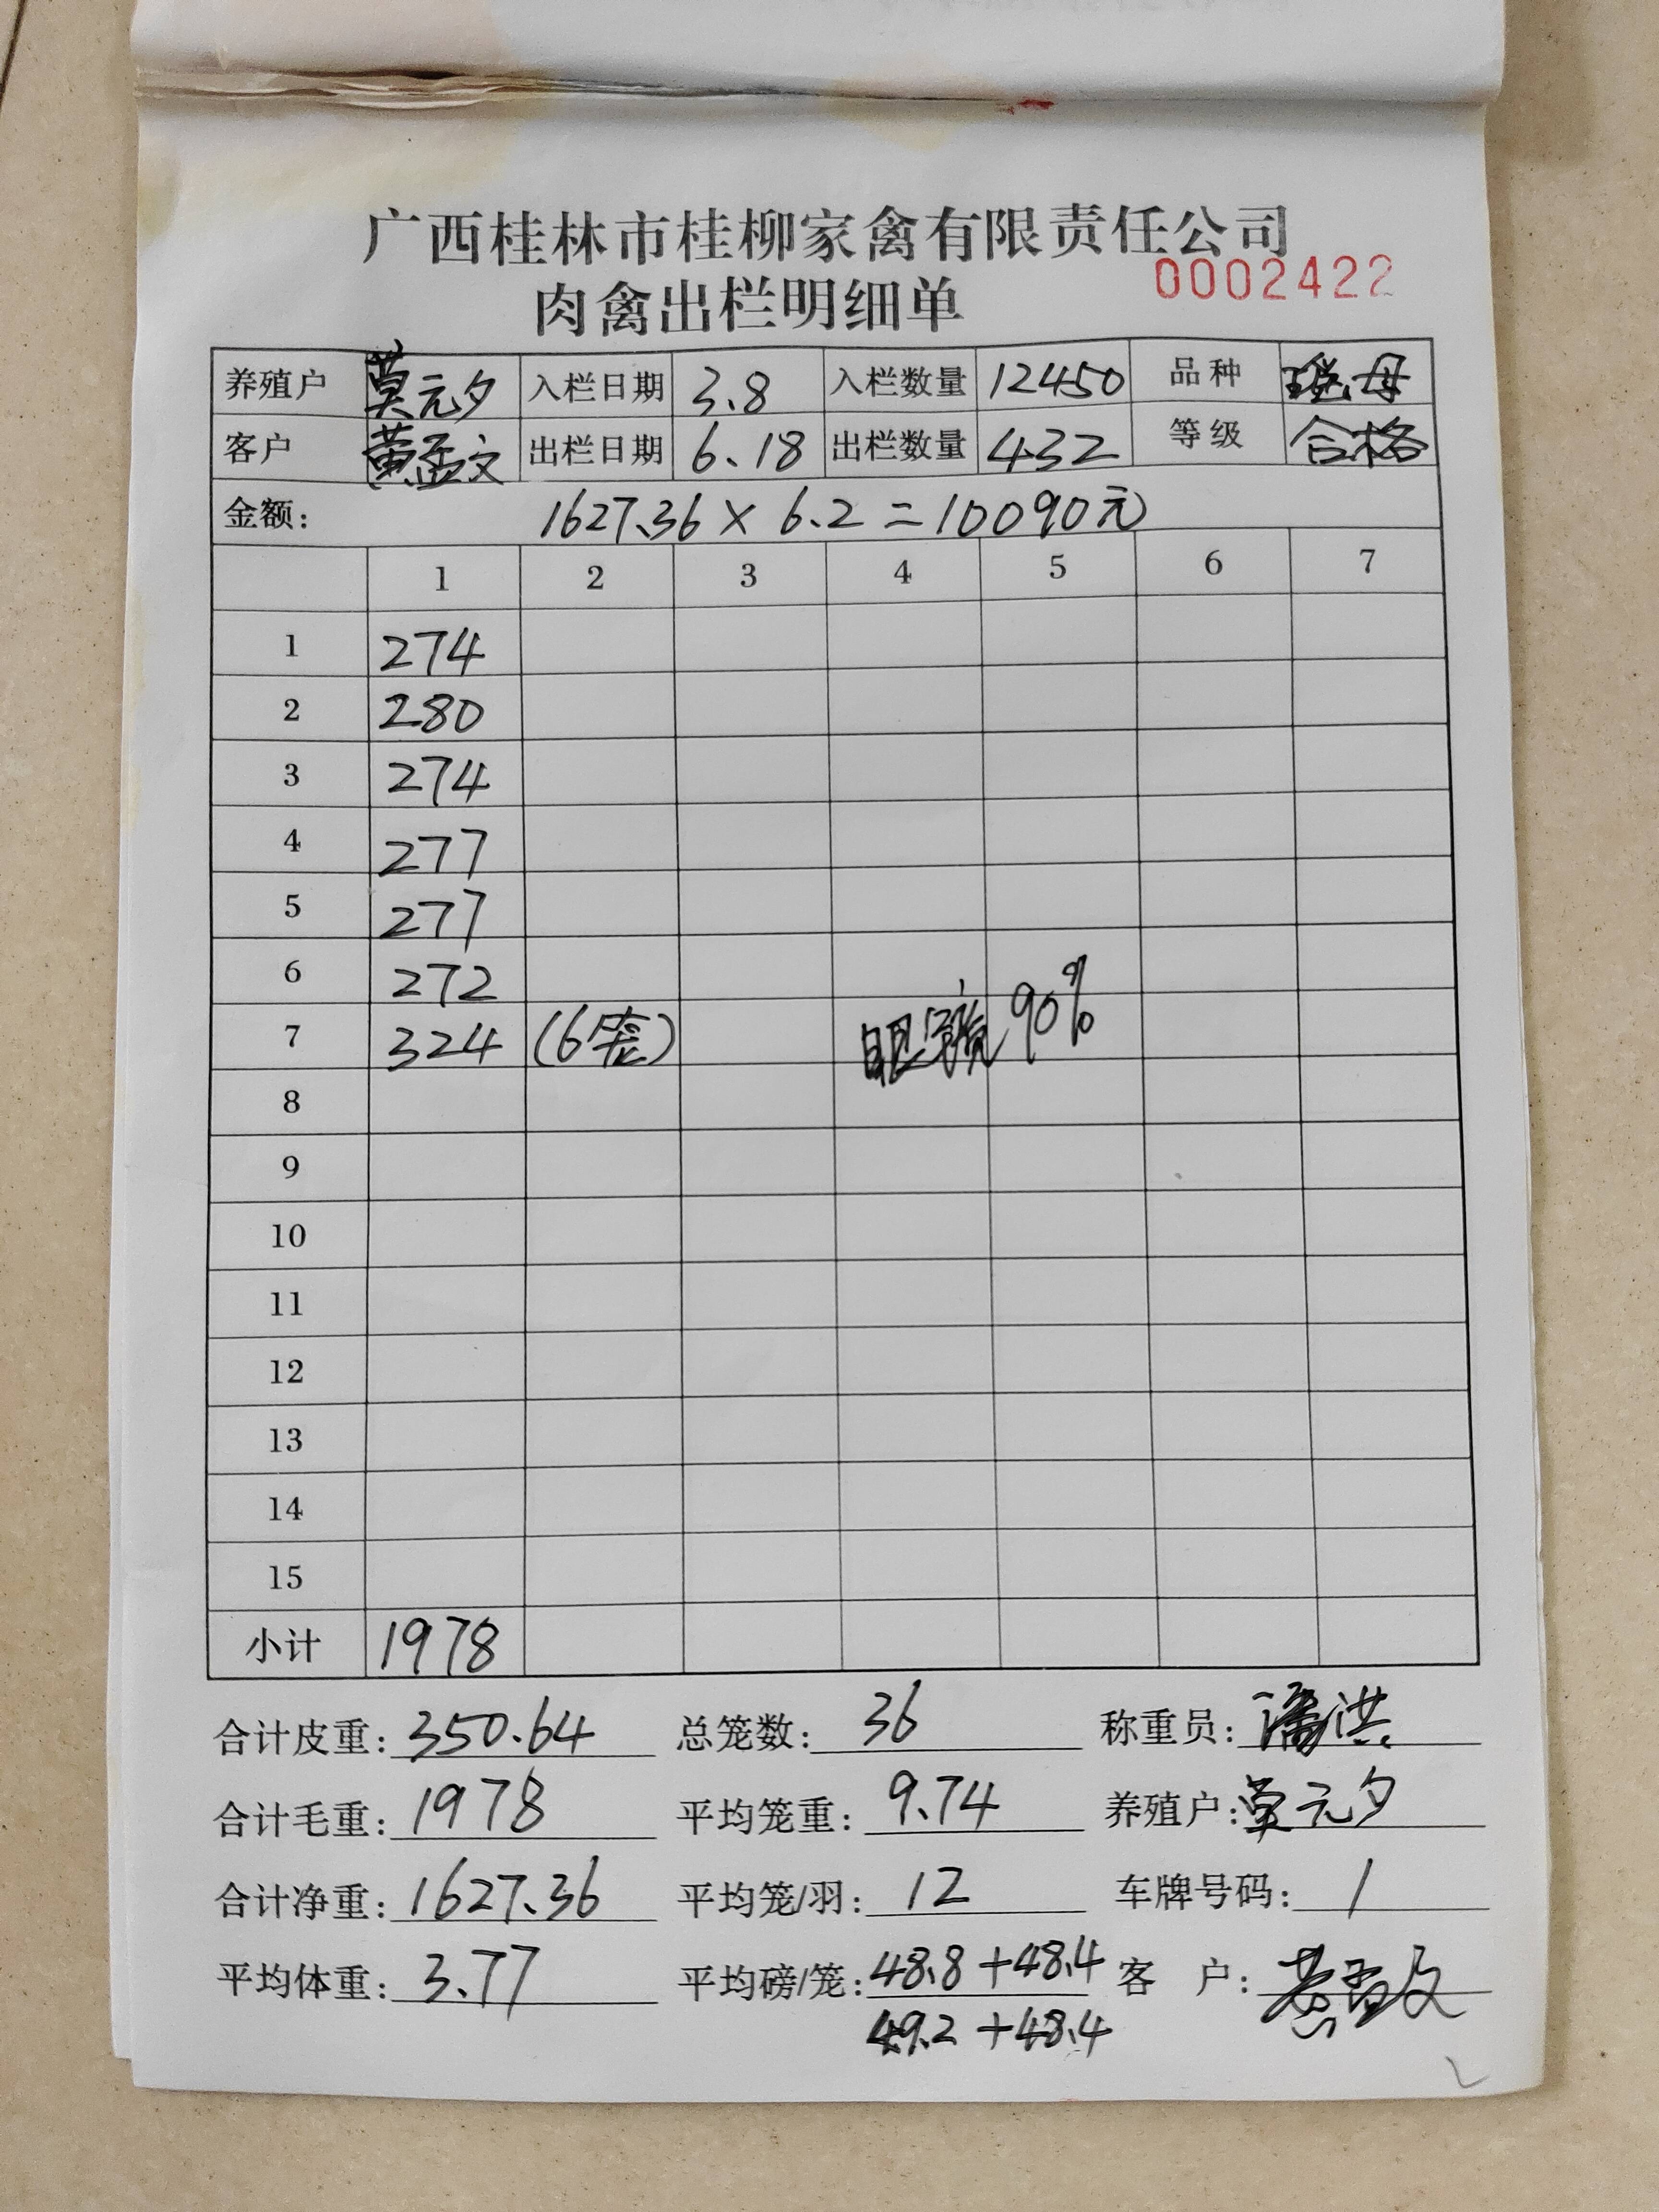 广西桂林市桂柳家禽有限责任公司
0002422
肉禽出栏明细单
养殖户 莫元夕 入栏日期 3.8 入栏数量 12450 品种 母
客户 黄孟文 出栏日期 6.18 出栏数量 432 等级 合格
金额: 1627.36 × 6.2 = 10090元
1 2 3 4 5 6 7
1 274
2 280
3 274
4 277
5 277
6 272
7 324 (6笼) 90%
8
9
10
11
12
13
14
15
小计 1978
合计皮重: 350.64 总笼数: 36 称重员: 潘洪
合计毛重: 1978 平均笼重: 9.74 养殖户: 莫元夕
合计净重: 1627.36 平均笼/羽: 12 车牌号码: /
平均体重: 3.77 平均磅/笼: 48.8+48.4 客 户: 黄孟文
49.2+48.4